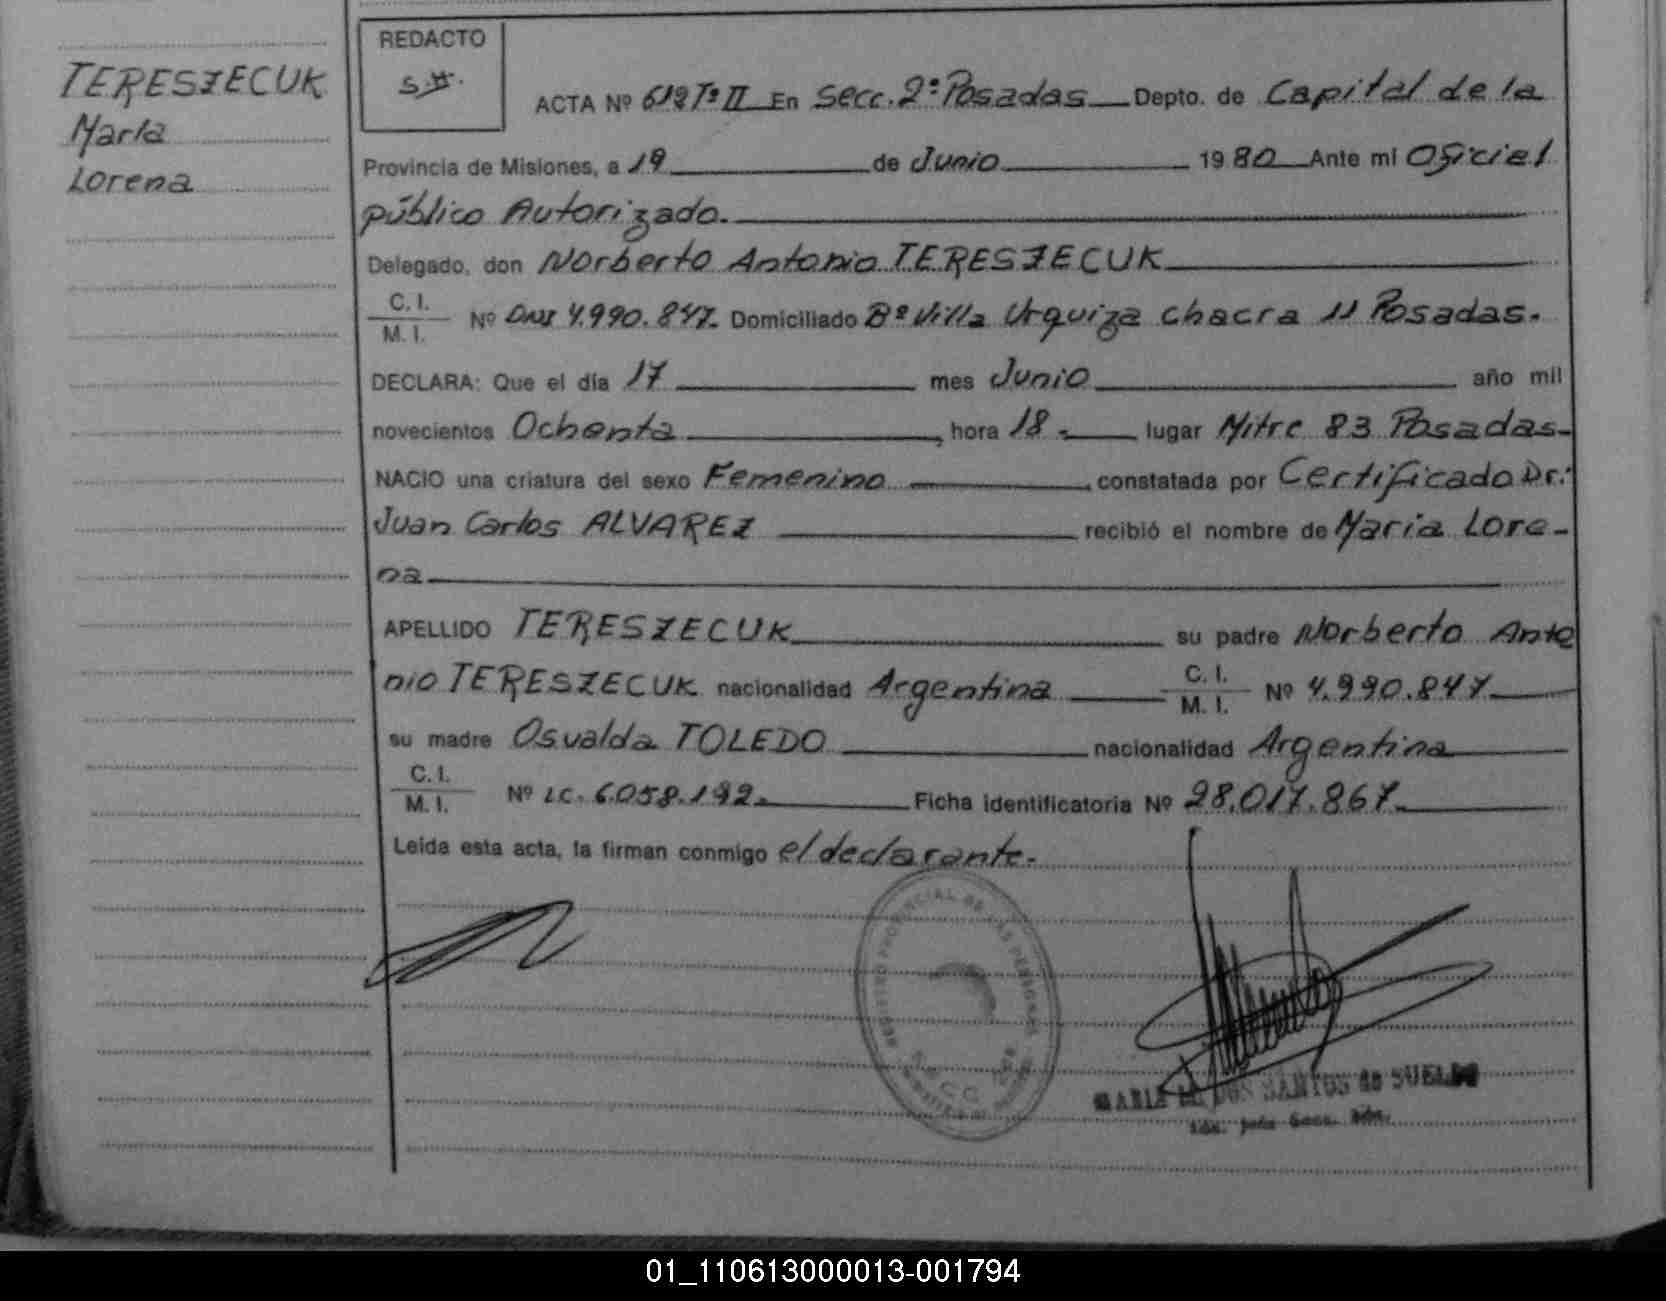 TERESZECUK
María
Lorena
REDACTO
S.H.
ACTA Nº 612 Tº II En Secc. 2ª Posadas Depto. de Capital de la
Provincia de Misiones, a 19 de Junio 1980 Ante mi Oficial
público Autorizado.
Delegado, don Norberto Antonio TERESZECUK
C. I.
M. I. Nº DNI 4.990.847. Domiciliado Bº Villa Urquiza chacra 11 Posadas.
DECLARA: Que el día 17 mes Junio año mil
novecientos Ochenta, hora 18.- lugar Mitre 83 Posadas-
NACIO una criatura del sexo Femenino, constatada por Certificado Dr:
Juan Carlos ALVAREZ recibió el nombre de María Lore-
na
APELLIDO TERESZECUK su padre Norberto Anto
nio TERESZECUK nacionalidad Argentina C. I. M. I. Nº 4.990.847
su madre Osvalda TOLEDO nacionalidad Argentina
C. I.
M. I. Nº LC. 6.058.192. Ficha identificatoria Nº 28.017.867.
Leída esta acta, la firman conmigo el declarante.
REGISTRO PROVINCIAL DE LAS PERSONAS
SECC.
MARIA DOS SANTOS de SUELDO
01_110613000013-001794